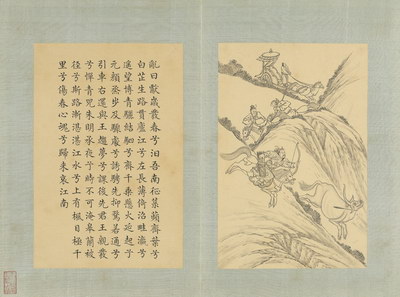 亂曰獻歲發春兮汨吾南征菉蘋齊葉兮
白芷生路貫廬江兮左長薄倚沼畦瀛兮
遙望博青驪結駟兮齊千乘懸火延起兮
元顏烝步及驟處兮誘騁先抑騖若通兮
引車右還與王趨夢兮課後先君王親發
兮憚青兕朱明承夜兮時不可淹皋蘭被
徑兮斯路漸湛湛江水兮上有楓目極千
里兮傷春心魂兮歸來哀江南